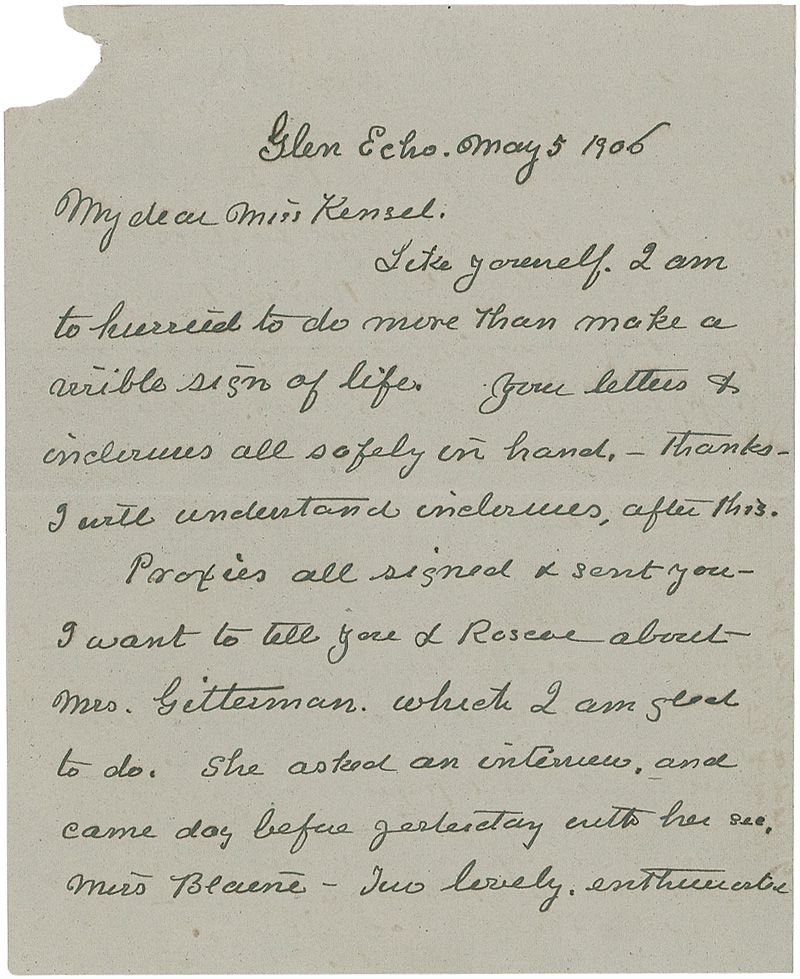 Glen Echo. May 5 1906
My dear Miss Kensel.
Like yourself. I am
to hurried to do more than make a
visible sign of life. Your letters &
inclosures all safely in hand. – Thanks –
I will understand inclosures, after this.
Proxies all signed & sent you –
I want to tell you & Roscoe about
Mrs. Gitterman. which I am glad
to do. She asked an interview. and
came day before yesterday with her sec.
Miss Blaene – Two lovely. enthusiastic